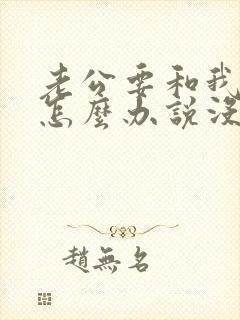 老公要和我
怎麼办說沒
趙無名